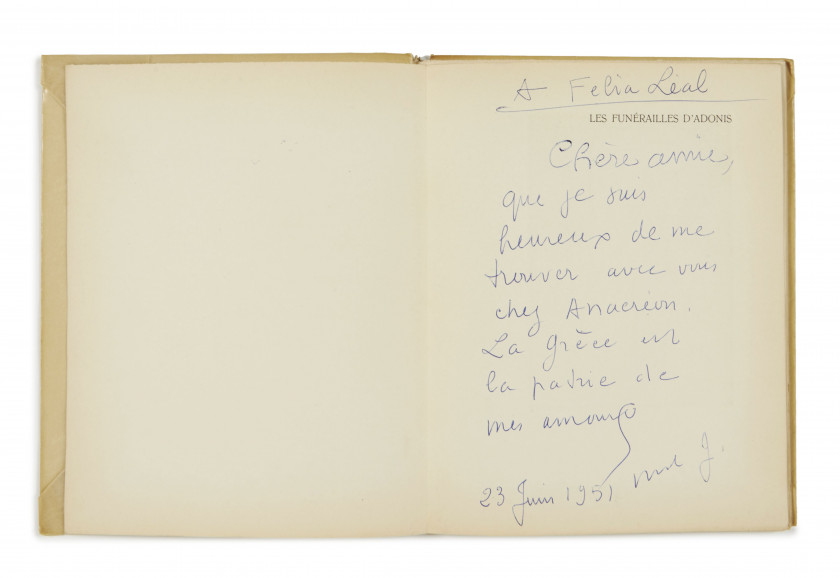 A Felia Léal
LES FUNÉRAILLES D'ADONIS
Chère amie,
que je suis
heureux de me
trouver avec vous
chez Anacréon.
La Grèce est
la patrie de
mes amours
J.
23 Juin 1951